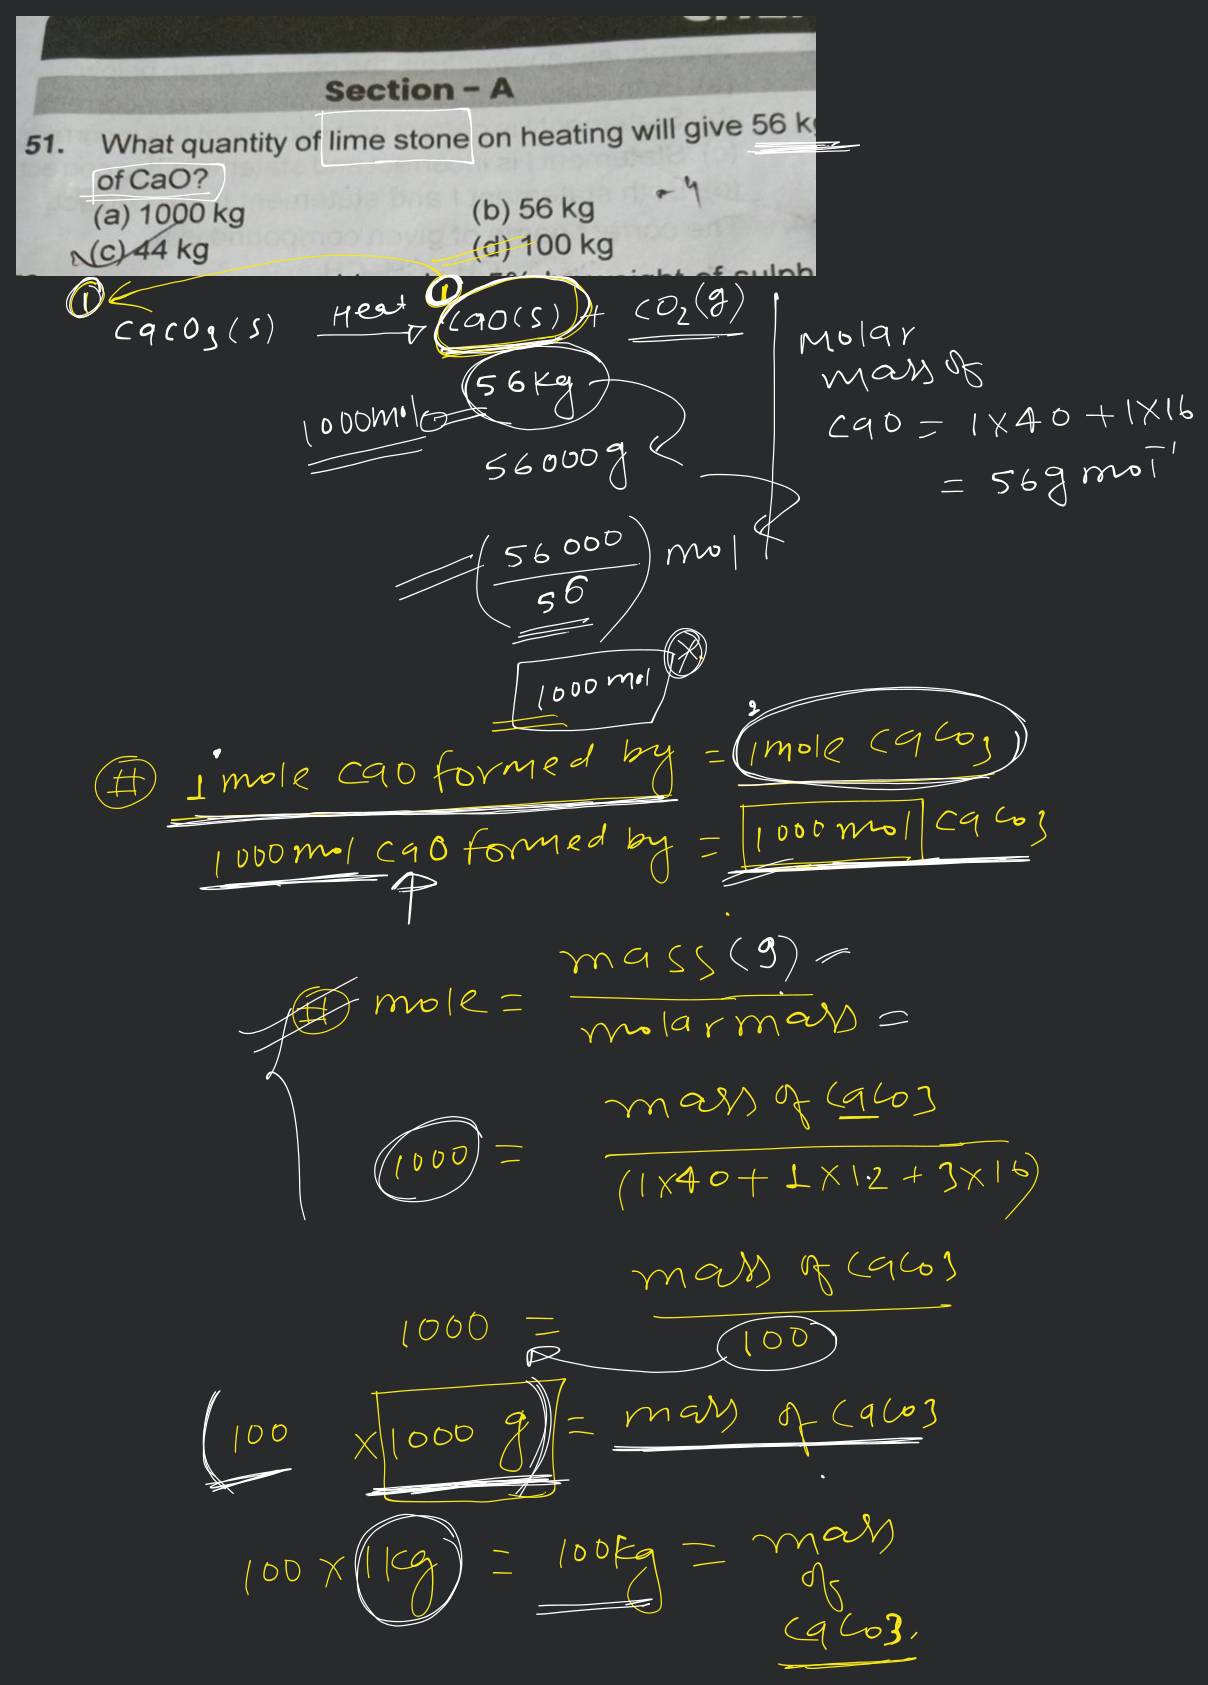 Section – A
51. What quantity of lime stone on heating will give 56 k
of CaO?
(a) 1000 kg (b) 56 kg
(c) 44 kg (d) 100 kg
① ①
CaCO3(s) Heat CaO(s) + CO2(g)
56kg
1000mol
56000g
Molar
mass of
CaO = 1×40 + 1×16
= 56g mol-1
= (56000/56) mol
1000 mol
# 1 mole CaO formed by = 1 mole CaCO3
1000 mol CaO formed by = 1000 mol CaCO3
# mole = mass (g) / molar mass =
1000 = mass of CaCO3 / (1×40 + 1×12 + 3×16)
1000 = mass of CaCO3 / 100
(100 × 1000 g) = mass of CaCO3
100 × 1kg = 100kg = mass
of
CaCO3.